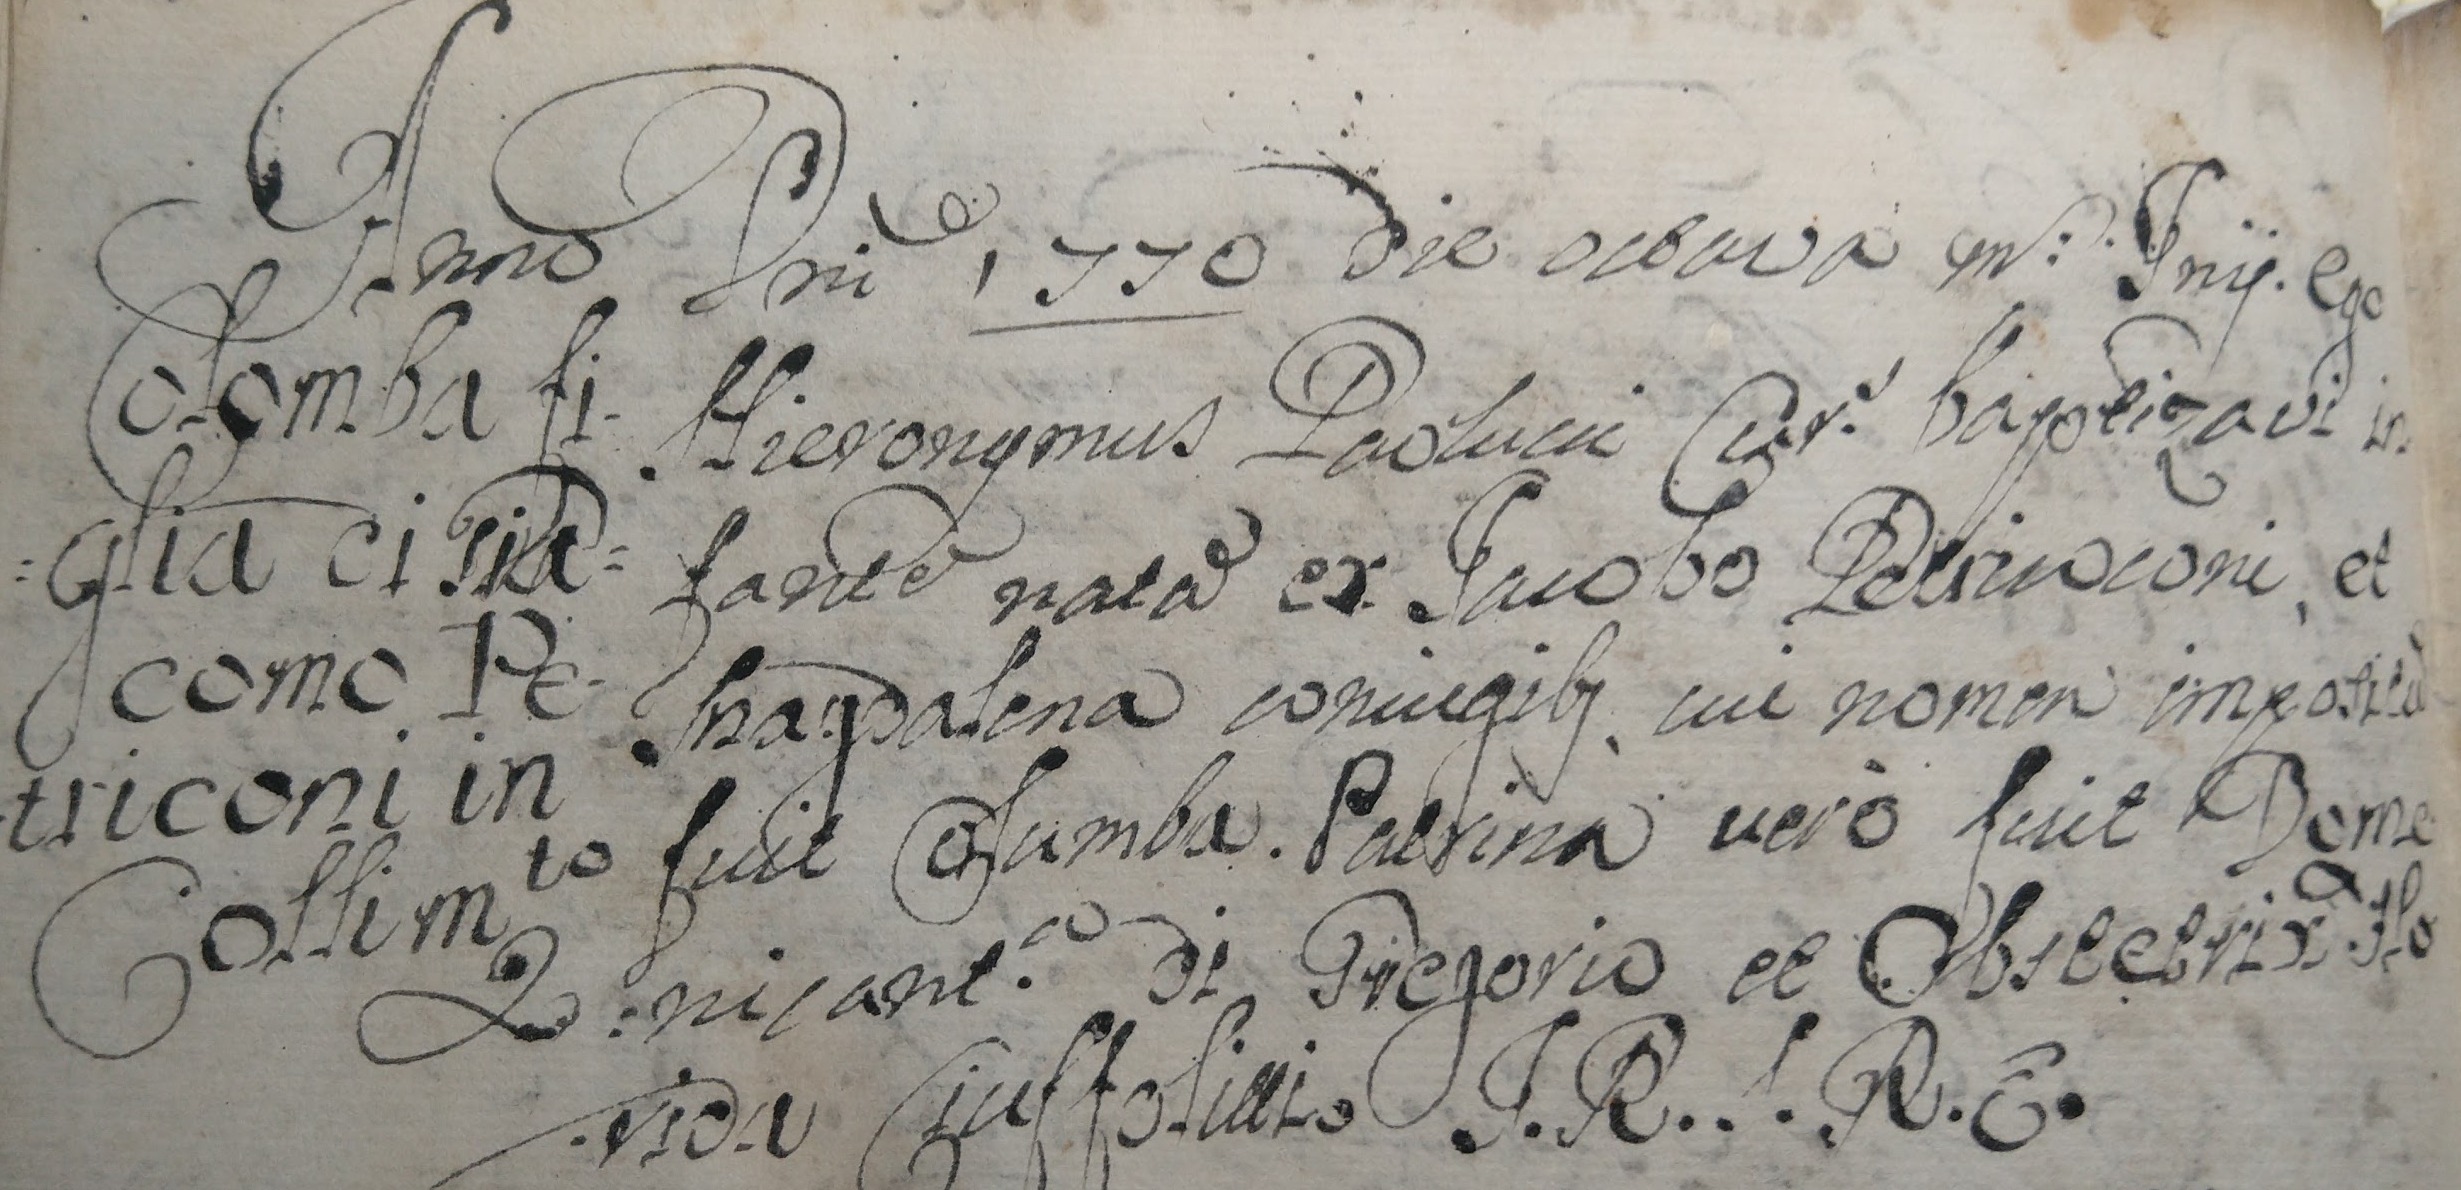 Colomba fi-
=glia di Gia=
como Pe-
triconi in
Collim.to
Anno Dni 1770 die octava m.s Junij. ego
Hieronymus Paolucci Cur.s baptizavi in
fante nata ex Jacobo Petricconi, et
Magdalena coniugibs, cui nomen impositũ
fuit Columba. Patrina verò fuit Dome
=nicant.a di Gregorio et Obstetrix Flo
rida Ciuffolilli J. R. S. R. E.